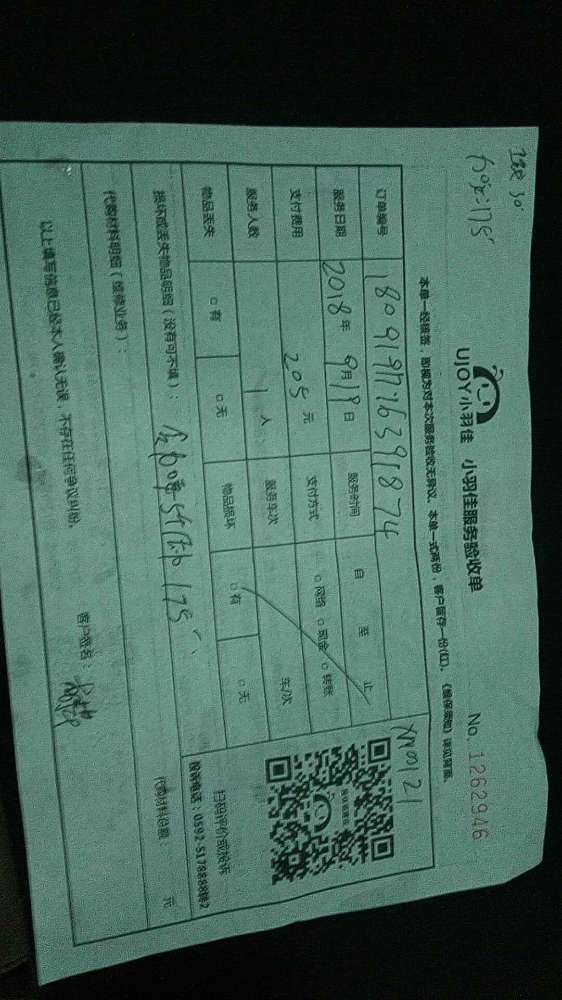 UJOY小羽佳 小羽佳服务验收单
No. 1262946
本单一经核签，即视为对本次服务验收无异议。本单一式两份，客户留存一份(红)。《维保须知》详见背面。
订单编号
XM0121
服务日期 2018年 9月19日 服务时间 自 至 止
支付费用 205 元 支付方式 □网络 □现金 □转账
服务人数 1 人 服务车次 车/次
物品丢失 □有 □无 物品损坏 □有 □无
扫码评价或投诉
投诉电话：0592-5178888转2
损坏或丢失物品明细（没有可不填）：
175
代购材料明细（维修业务）：
代购材料总额： 元
以上填写信息已经本人确认无误，不存在任何争议纠纷。
客户签名：